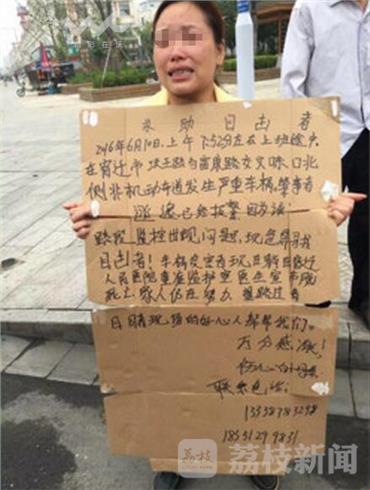 求助目击者
2016年6月10日上午7:52分左右上班途中
在宿迁市 项王路与富康路交叉路口北
侧非机动车道发生严重车祸，肇事者
逃逸已经报警因为该
路段 监控出现问题，现急寻找
目击者！车祸受害者现日前在宿迁
人民医院重症监护室医生宣布脑
死亡 家人仍在努力 望路过者
目睹现场的好心人帮帮我们。
万分感激！
伤心的母亲
联系电话：
荔枝新闻
荔枝